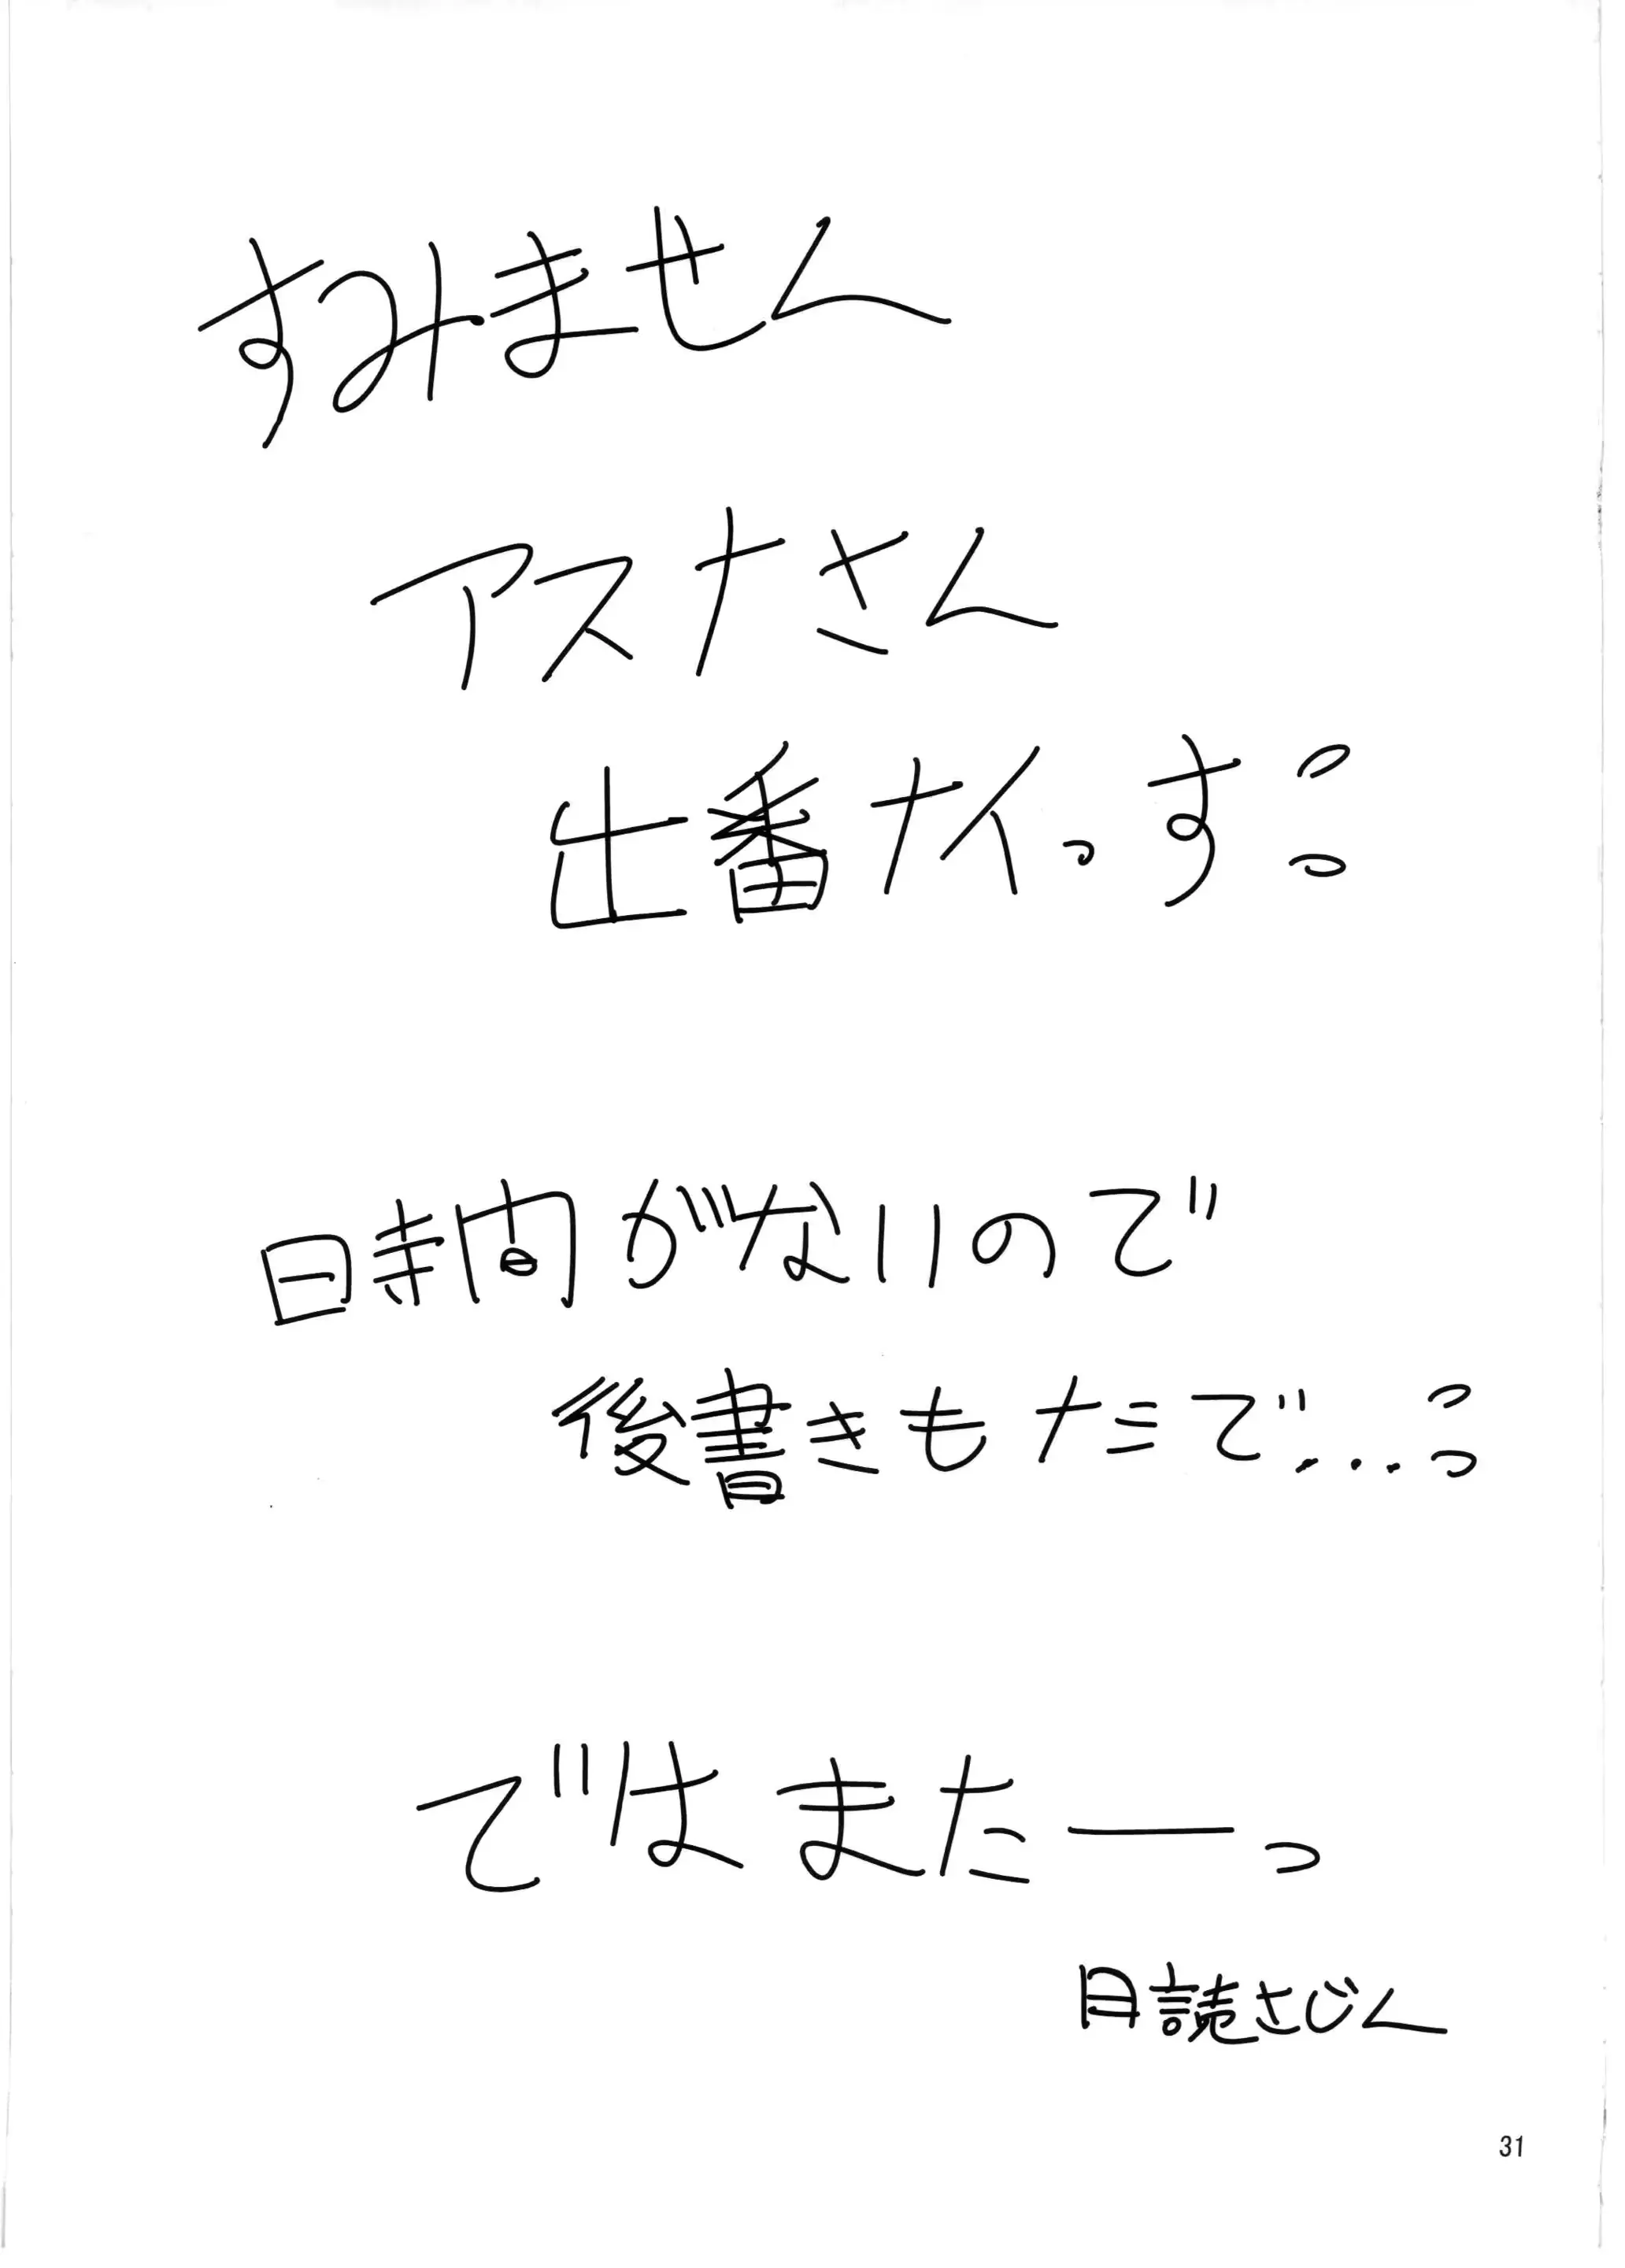 すみません
アスナさん
出番ナイっす
時間がないので
後書きもナシで...
ではまたーっ
日読さじん
31